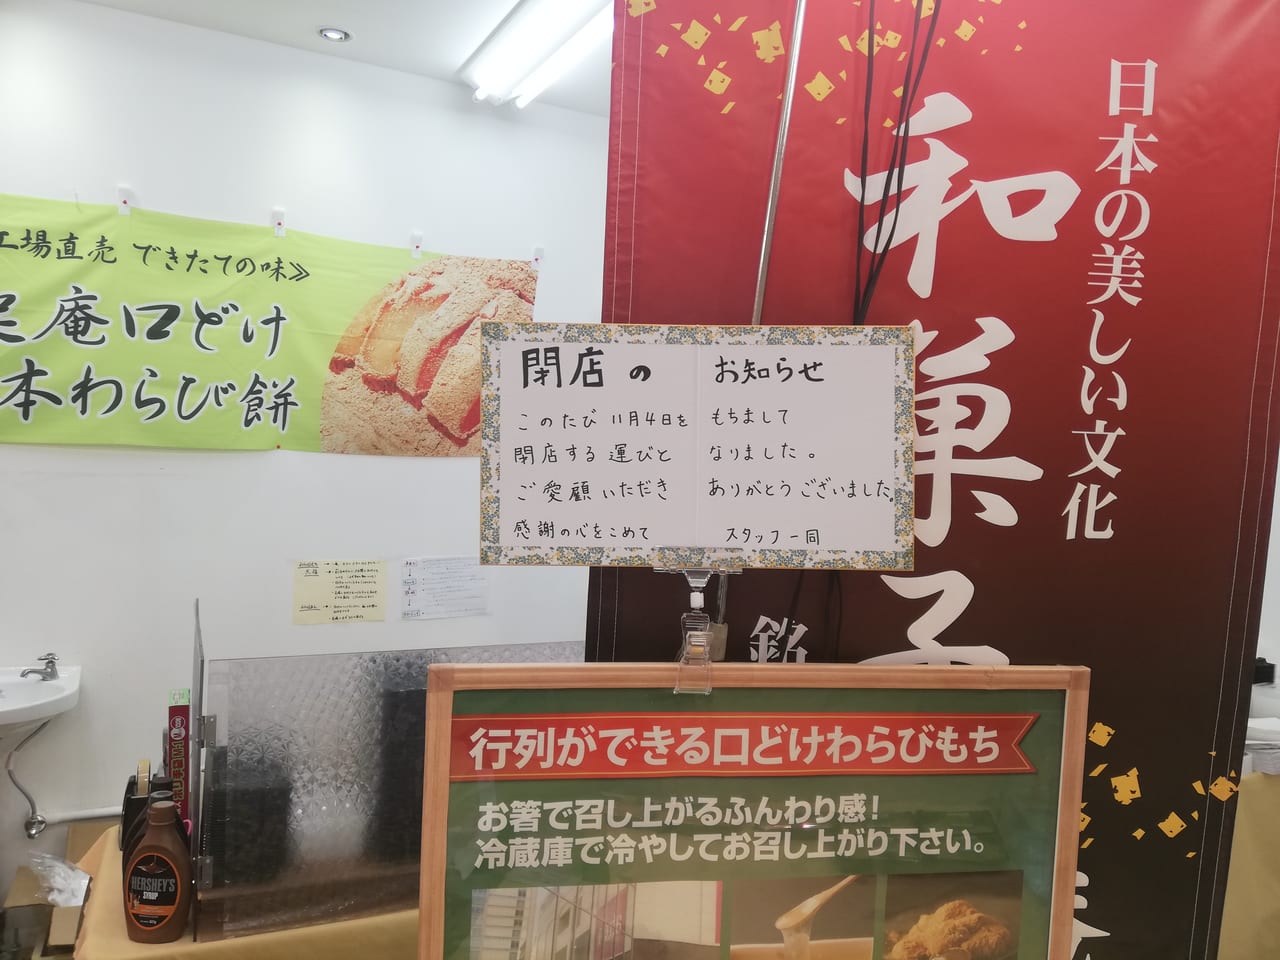 工場直売 できたての味≫
庵口どけ
本わらび餅
日本の美しい文化
和菓子
銘
閉店の お知らせ
このたび 11月4日を もちまして
閉店する運びと なりました。
ご愛顧いただき ありがとうございました。
感謝の心をこめて スタッフ一同
行列ができる口どけわらびもち
お箸で召し上がるふんわり感!
冷蔵庫で冷やしてお召し上がり下さい。
HERSHEY'S
SYRUP